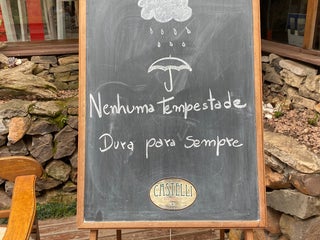 Nenhuma tempestade
Dura para sempre
CASTELLI